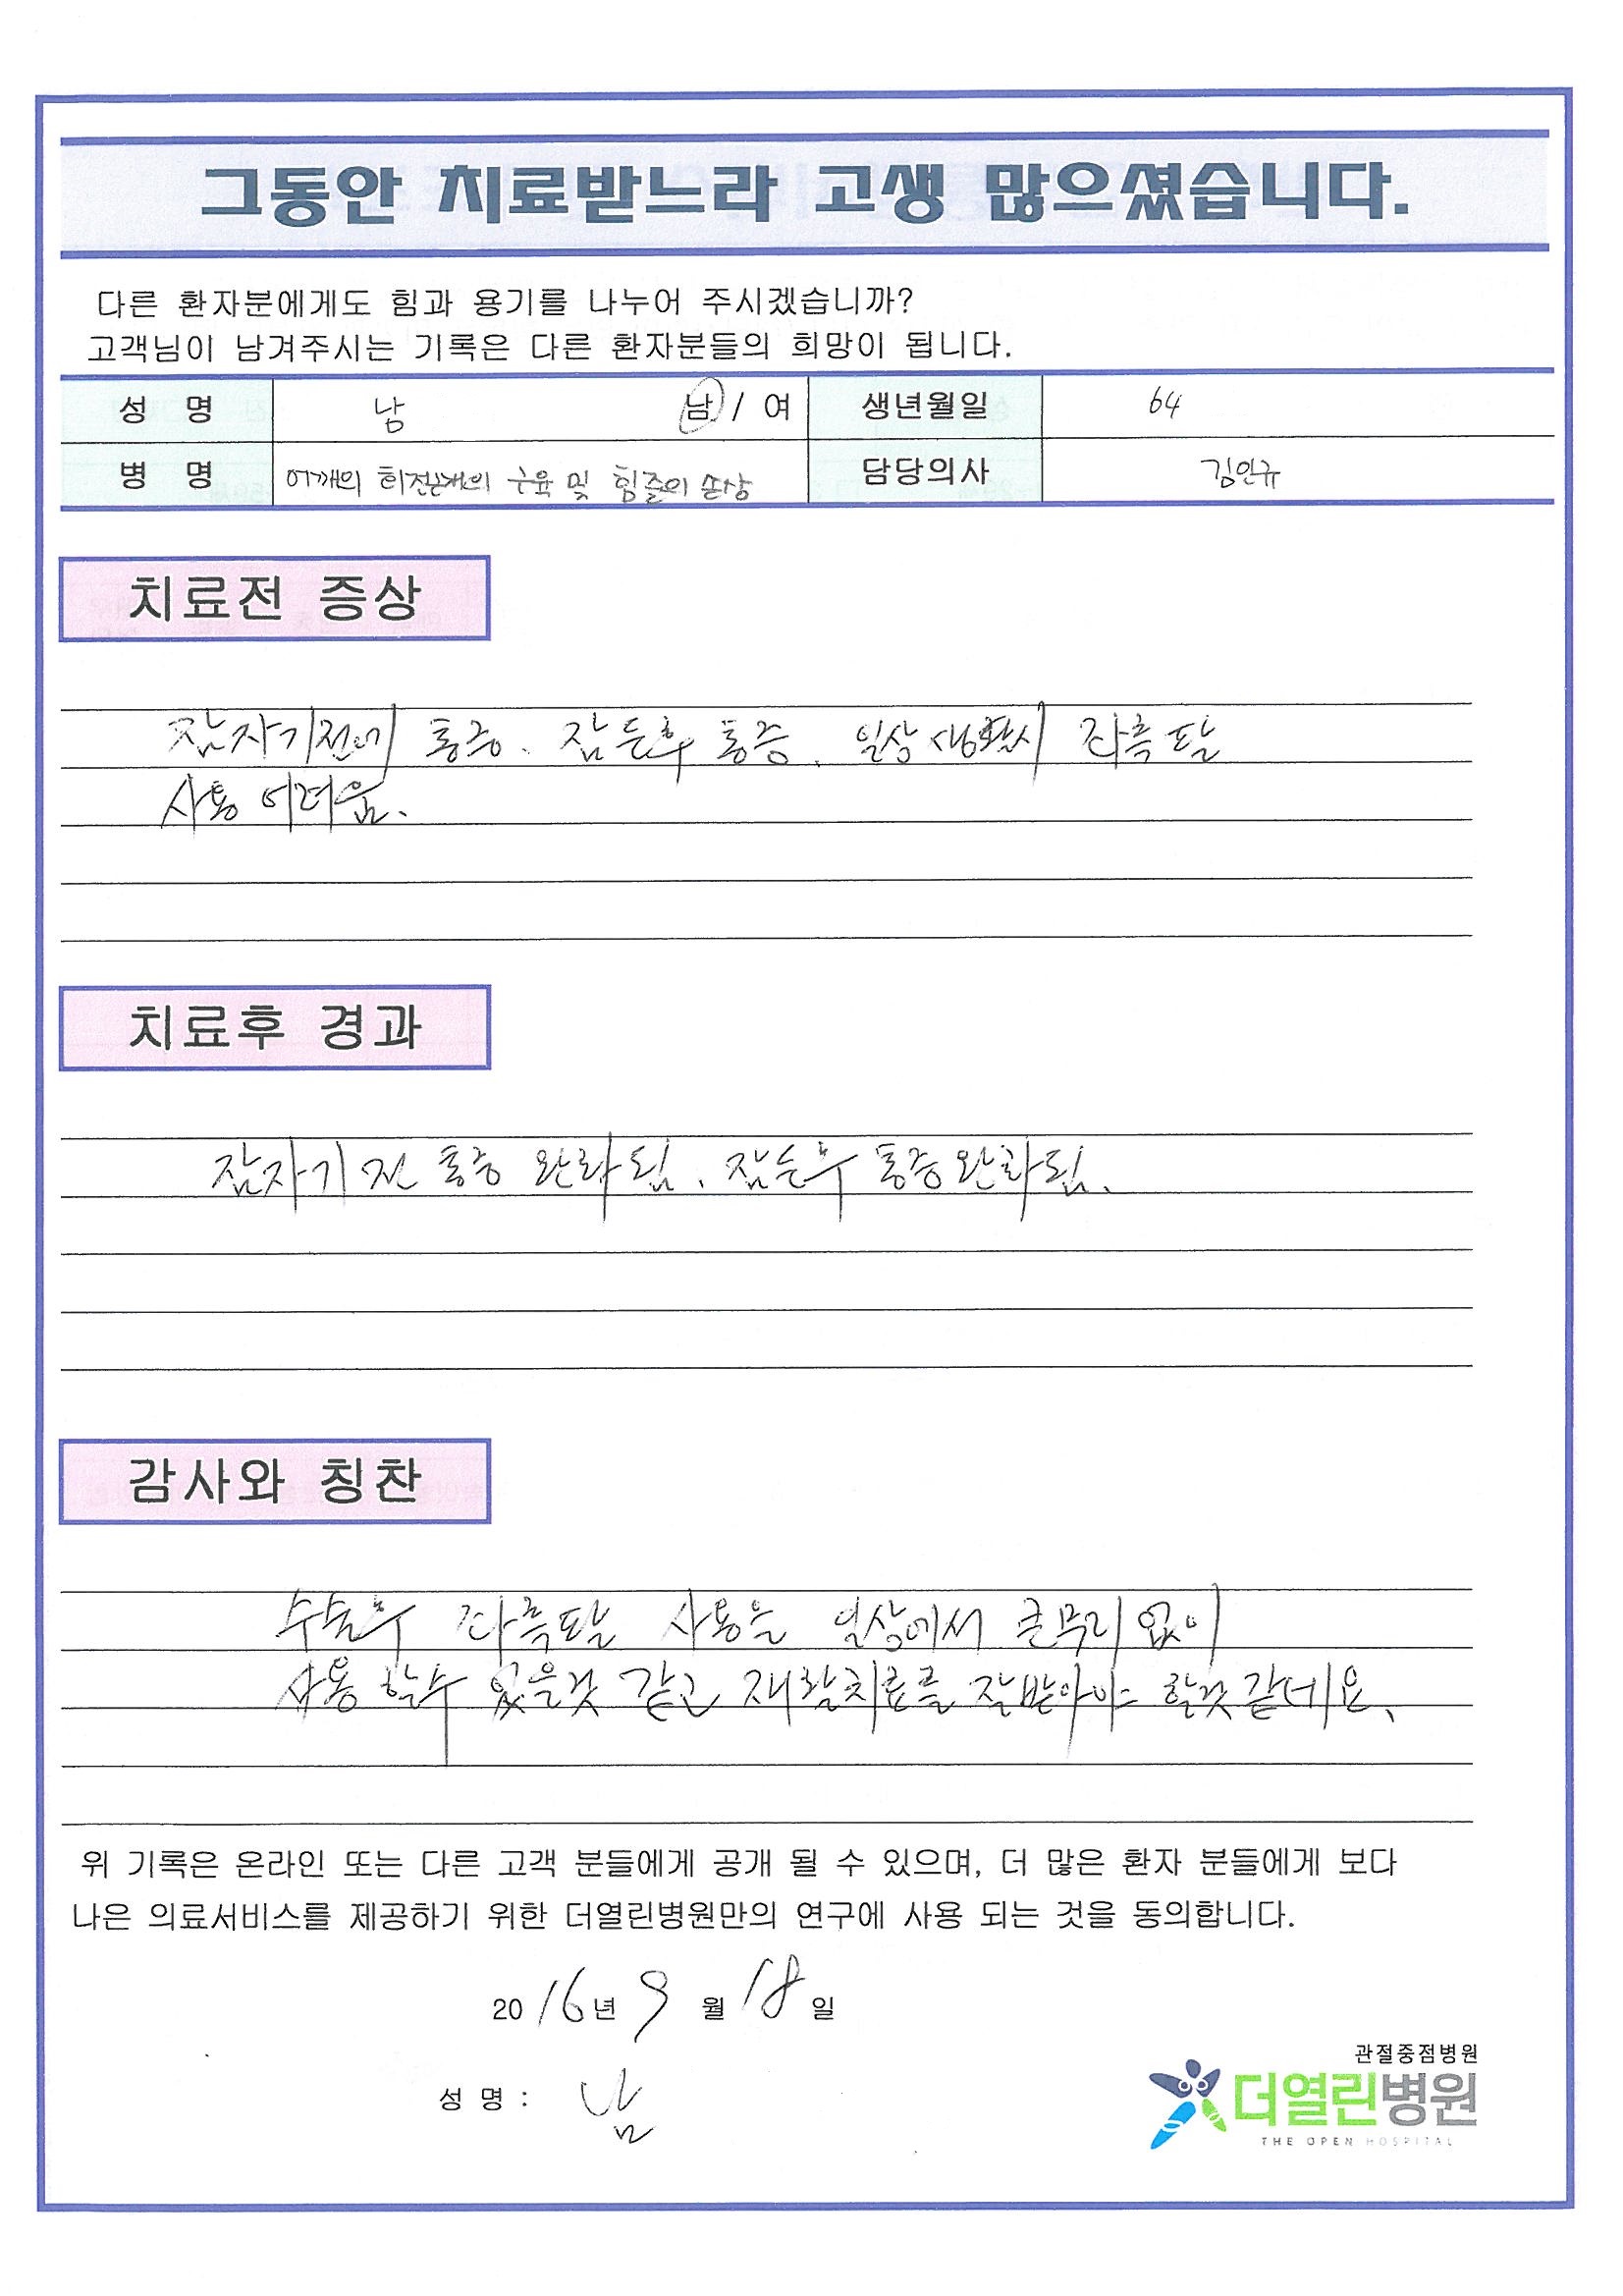 그동안 치료받느라 고생 많으셨습니다.
다른 환자분에게도 힘과 용기를 나누어 주시겠습니까?
고객님이 남겨주시는 기록은 다른 환자분들의 희망이 됩니다.
성 명 남 남 / 여 생년월일 64
병 명 어깨의 회전근개의 근육 및 힘줄의 손상 담당의사 김안규
치료전 증상
잠자기전에 통증. 잠든후 통증. 일상생활시 좌측팔
사용 어려움.
치료후 경과
잠자기 전 통증 완화됨. 잠든후 통증완화됨.
감사와 칭찬
수술후 좌측팔 사용은 일상에서 큰무리없이
사용 할수 있을것 같고 재활치료를 잘받아야 할것같네요.
위 기록은 온라인 또는 다른 고객 분들에게 공개 될 수 있으며, 더 많은 환자 분들에게 보다
나은 의료서비스를 제공하기 위한 더열린병원만의 연구에 사용 되는 것을 동의합니다.
2016년 9월 18일
성 명 : 남
관절중점병원
더열린병원
THE OPEN HOSPITAL